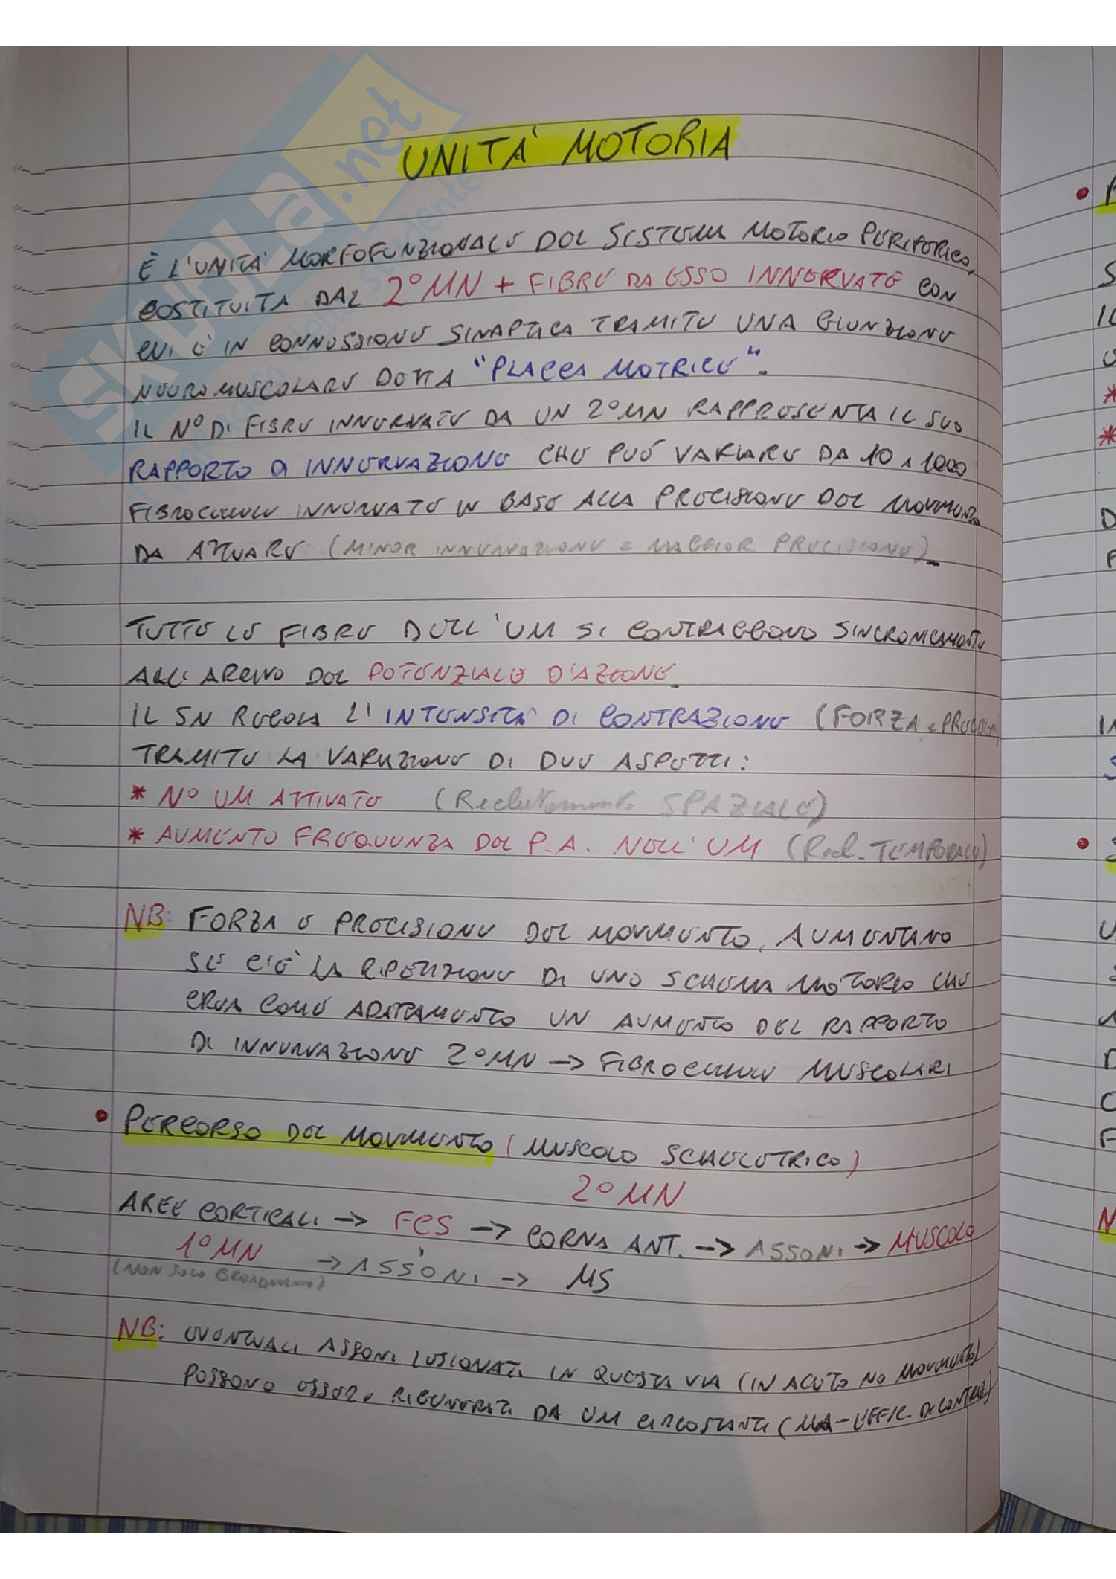 UNITÀ MOTORIA
È L'UNITÀ MORFOFUNZIONALE DEL SISTEMA MOTORIO PERIFERICO,
COSTITUITA DAL 2° MN + FIBRE DA ESSO INNERVATE CON
CUI È IN CONNESSIONE SINAPTICA TRAMITE UNA GIUNZIONE
NEUROMUSCOLARE DETTA "PLACCA MOTRICE".
IL N° DI FIBRE INNERVATE DA UN 2° MN RAPPRESENTA IL SUO
RAPPORTO DI INNERVAZIONE CHE PUÒ VARIARE DA 10 A 1000
FIBROCELLULE INNERVATE IN BASE ALLA PRECISIONE DEL MOVIMENTO
DA ATTUARE (MINOR INNERVAZIONE = MAGGIOR PRECISIONE).
TUTTE LE FIBRE DELL'UM SI CONTRAGGONO SINCRONICAMENTE
ALL'ARRIVO DEL POTENZIALE D'AZIONE.
IL SN REGOLA L'INTENSITÀ DI CONTRAZIONE (FORZA e PRECISIONE)
TRAMITE LA VARIAZIONE DI DUE ASPETTI:
* N° UM ATTIVATE (Reclutamento SPAZIALE)
* AUMENTO FREQUENZA DEL P.A. NELL'UM (Recl. TEMPORALE)
NB: FORZA E PRECISIONE DEL MOVIMENTO, AUMENTANO
SE C'È LA RIPETIZIONE DI UNO SCHEMA MOTORIO CHE
CREA COME ADATTAMENTO UN AUMENTO DEL RAPPORTO
DI INNERVAZIONE 2° MN -> FIBROCELLULE MUSCOLARI
• PERCORSO DEL MOVIMENTO (MUSCOLO SCHELETRICO)
2° MN
AREE CORTICALI -> FCS -> CORNA ANT. -> ASSONI -> MUSCOLO
1° MN -> ASSONI -> MS
(NON SOLO)
NB: EVENTUALI ASSONI LESIONATI IN QUESTA VIA (IN ACUTO NO MOVIMENTO)
POSSONO ESSERE RIGENERATI DA UM CIRCOSTANTI (MA - EFFIC. DI CONTRAZ)
SKUOLA.net